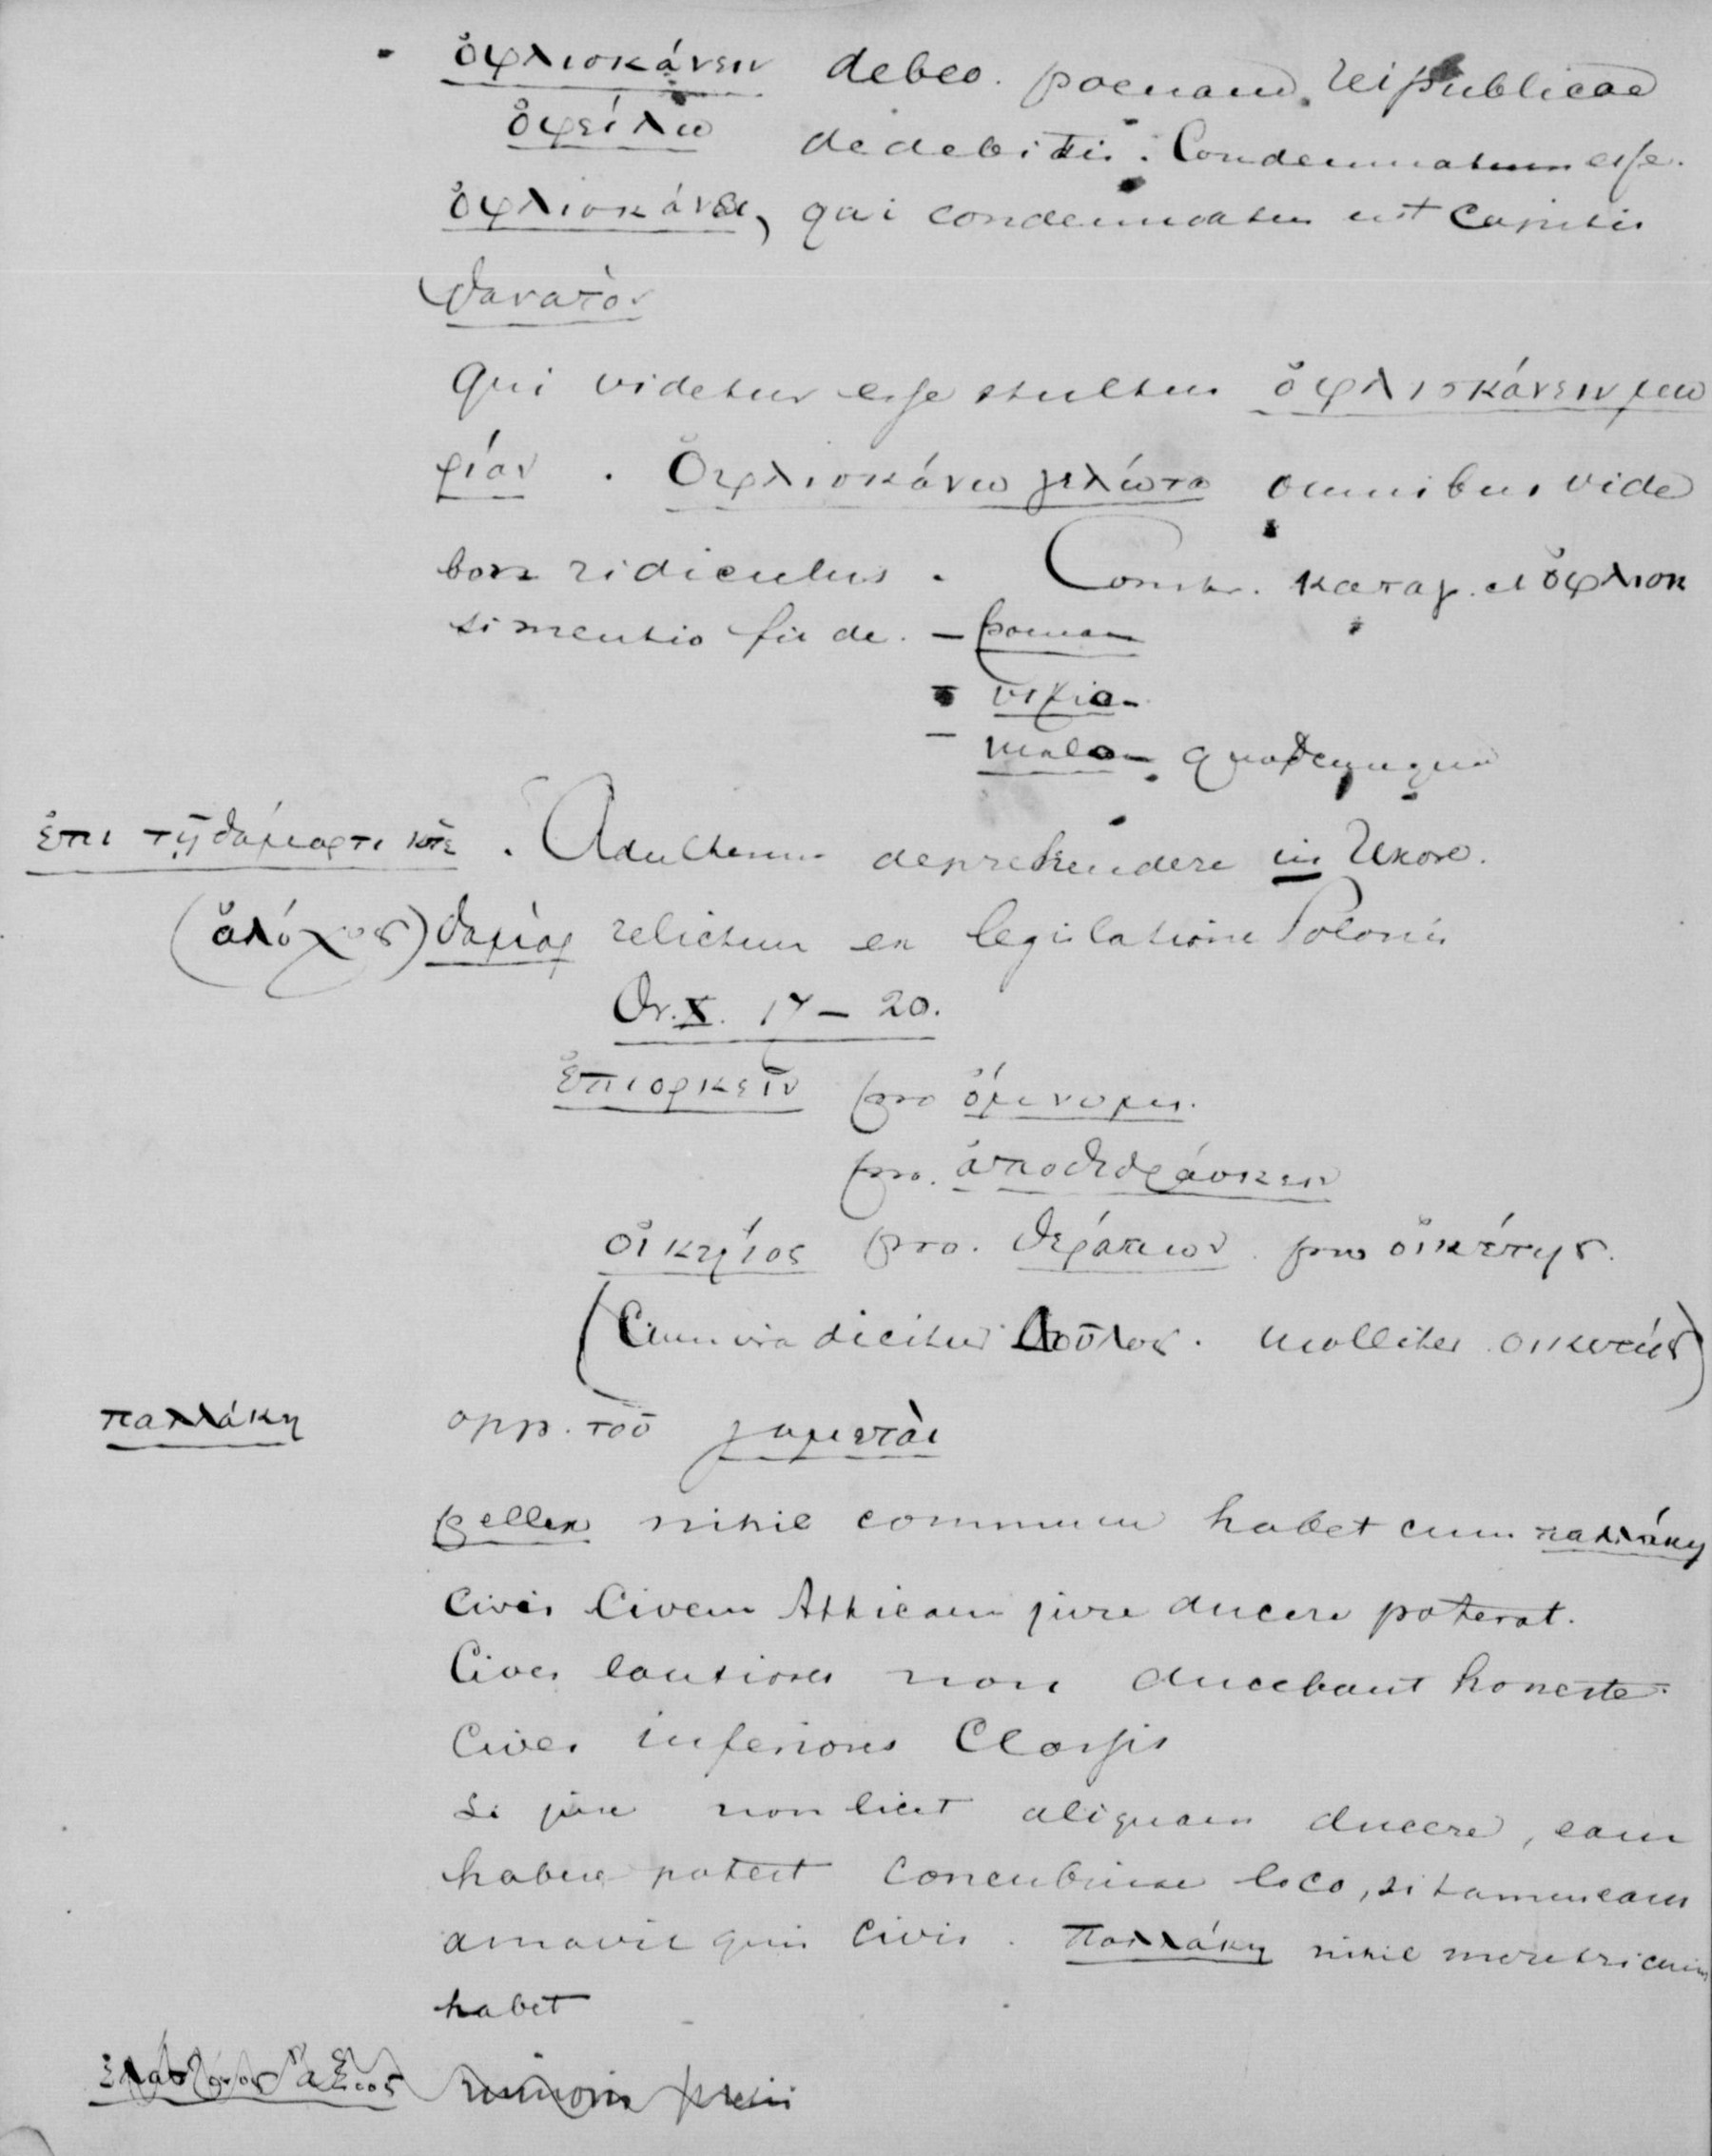 ὀφλισκάνειν debeo. poenam reipublicae
ὀφείλω de debitis. Condemnatum esse.
ὀφλισκάνει, qui condemnatus est Capitis
θανατὸν
Qui videtur esse stultus ὀφλισκάνειν μω
ρίαν. Ὀφλισκάνω γέλωτα omnibus vide
bor ridiculus. Constr. καταγ. et ὀφλισκ
si mentio fit de. – poenam
– vitio
– malo quodcunque
ἐπι τῇ δάμαρτι κτε. Adulterum deprehendere in Uxore.
(ἀλόχος) δαμαρ relictum ex legislatione Solonis
Or. X. 17 – 20.
ἐπιορκεῖν pro ὄμνυμι.
pro. ἀποδιδράσκειν
οἰκῆος pro. θεράπων. pro οἰκέτης.
(Cum ira dicitur Δοῦλος. molliter οικετης)
παλλάκη opp. τοῦ γαμεταὶ
pellex nihil commune habet cum παλλάκη
Civis Civem Atticam jure ducere poterat.
Cives lautiores non ducebant honeste.
Cives inferioris Classis
Si jure non licet aliquam ducere, eam
habere potest Concubinae loco, si tamen eam
amavit quis civis. Παλλάκη nihil meretricium
habet
minoris pretii